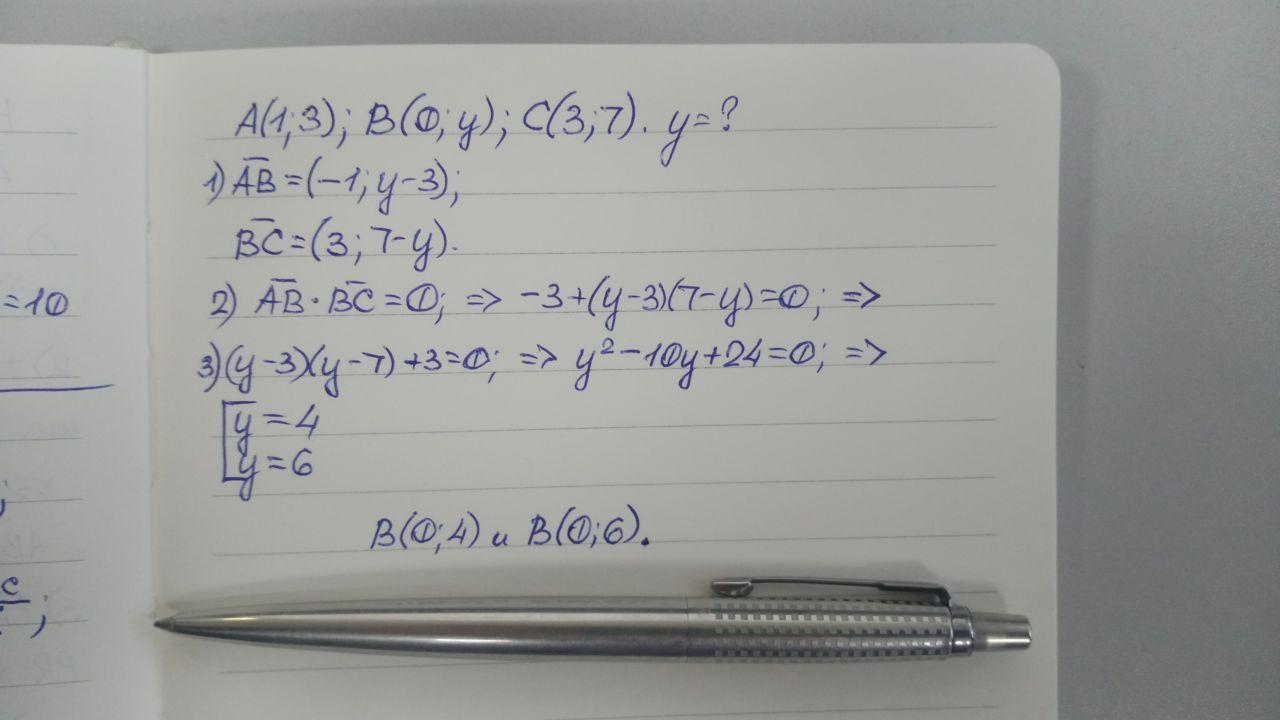 A(1;3); B(0;y); C(3;7). y=?
1) A̅B̅=(−1; y−3);
B̅C̅=(3; 7−y).
2) A̅B̅·B̅C̅=0; => −3+(y−3)(7−y)=0; =>
3)(y−3)(y−7)+3=0; => y²−10y+24=0; =>
[y=4
y=6
B(0;4) и B(0;6).
=10
;
c
;